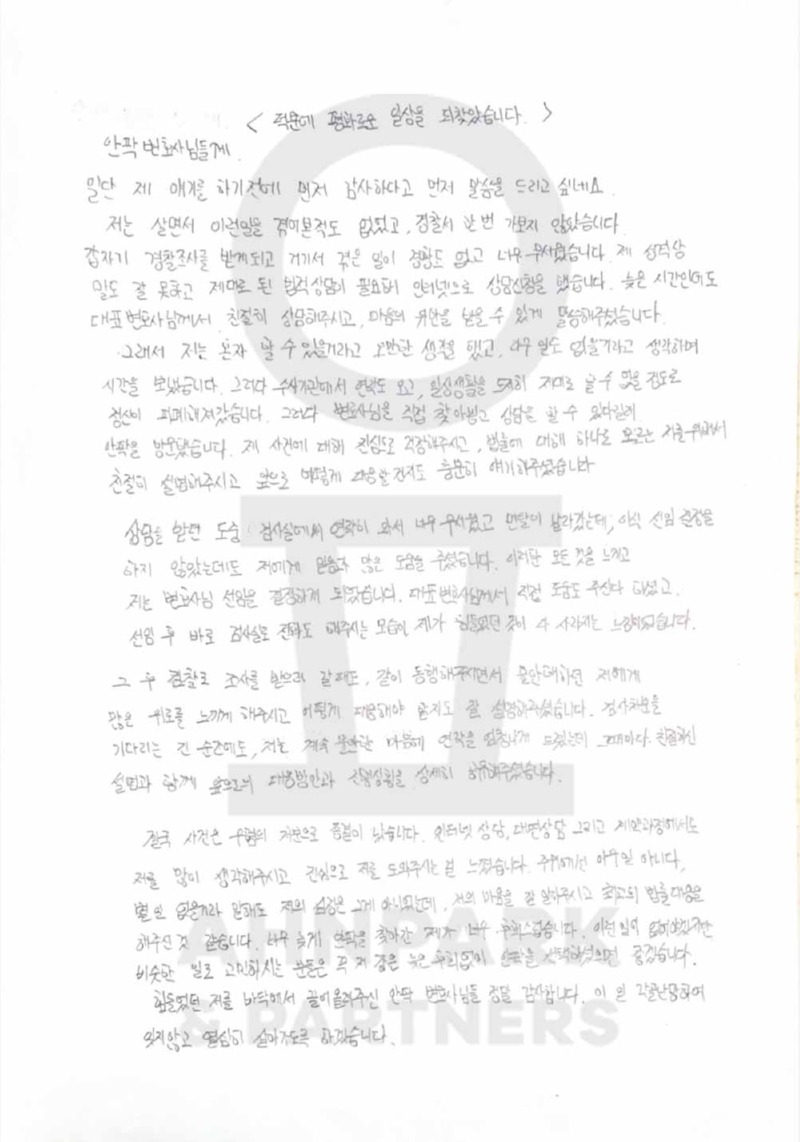 < 덕분에 평화로운 일상을 되찾았습니다. >
안팍 변호사님들께.
일단 제 얘기를 하기전에 먼저 감사하다고 먼저 말씀을 드리고 싶네요.
저는 살면서 이런일을 겪어본적도 없었고, 경찰서 한 번 가보지 않았습니다.
갑자기 경찰조사를 받게되고 거기서 겪은 일이 경황도 없고 너무 무서웠습니다. 제 성격상
말도 잘 못하고 제대로 된 법적상담이 필요해 인터넷으로 상담신청을 했습니다. 늦은 시간인데도
대표변호사님께서 친절히 상담해주시고, 마음의 위안을 받을 수 있게 말씀해주셨습니다.
그래서 저는 혼자 할 수 있을거라고 오만한 생각을 했고, 아무 일도 없을거라고 생각하며
시간을 보냈습니다. 그러다 수사기관에서 연락도 오고, 일상생활을 도저히 제대로 할 수 없을 정도로
정신이 피폐해져갔습니다. 그러다 변호사님을 직접 찾아뵙고 상담을 할 수 있다길래
안팍을 방문했습니다. 제 사건에 대해 진심으로 걱정해주시고, 법률에 대해 하나도 모르는 저를 위해서
친절히 설명해주시고 앞으로 어떻게 대응할건지도 충분히 얘기해주셨습니다
상담을 받던 도중 검사실에서 연락이 와서 너무 무서웠고 멘탈이 날라갔는데, 아직 선임 결정을
하지 않았는데도 저에게 믿음과 많은 도움을 주셨습니다. 이러한 모든 것을 느끼고
저는 변호사님 선임을 결정하게 되었습니다. 대표변호사님께서 직접 도움도 주신다 하셨고,
선임 후 바로 검사실로 전화도 해주시는 모습에 제가 힘들었던 것이 다 사라지는 느낌이었습니다.
그 후 경찰로 조사를 받으러 갈때도, 같이 동행해주시면서 불안해하던 저에게
많은 위로를 느끼게 해주시고 어떻게 대응해야 할지도 잘 설명해주셨습니다. 검사처분을
기다리는 긴 순간에도, 저는 계속 불안한 마음에 연락을 엄청나게 드렸는데 그때마다 친절하신
설명과 함께 앞으로의 대응방안과 진행상황을 상세히 해주셨습니다.
결국 사건은 무혐의 처분으로 종결이 났습니다. 인터넷 상담, 대면상담 그리고 계약과정에서도
저를 많이 생각해주시고 진심으로 저를 도와주시는 걸 느꼈습니다. 주위에선 아무일 아니다,
별 일 없을거라 말해도 저의 심정은 그게 아니었는데, 저의 마음을 잘 알아주시고 최고의 법률대응을
해주신 것 같습니다. 너무 늦게 안팍을 찾아간 제가 너무 후회스럽습니다. 이런 일이 없어야겠지만
비슷한 일로 고민하시는 분들은 꼭 저 같은 늦은 후회없이 안팍을 선택하셨으면 좋겠습니다.
힘들었던 저를 바닥에서 끌어올려주신 안팍 변호사님들 정말 감사합니다. 이 일 각골난망하여
잊지않고 열심히 살아가도록 하겠습니다.
AHNPARK
& PARTNERS